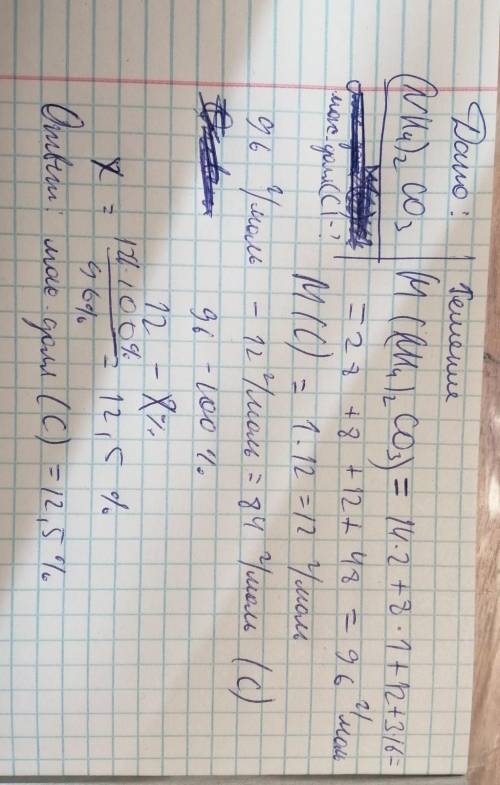 Дано:
Решение
(NH4)2 CO3
M ((NH4)2 CO3) = 14·2 + 8·1 + 12 + 3·16 =
= 28 + 8 + 12 + 48 = 96 г/моль
мас. доля (C) - ?
M (C) = 1·12 = 12 г/моль
96 г/моль - 12 г/моль = 84 г/моль (C)
96 - 100 %
12 - X %
X = 12·100% / 96% = 12,5 %
Ответ: мас. доля (C) = 12,5 %